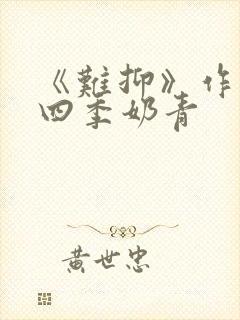 《難抑》作
四季奶青
黄世忠